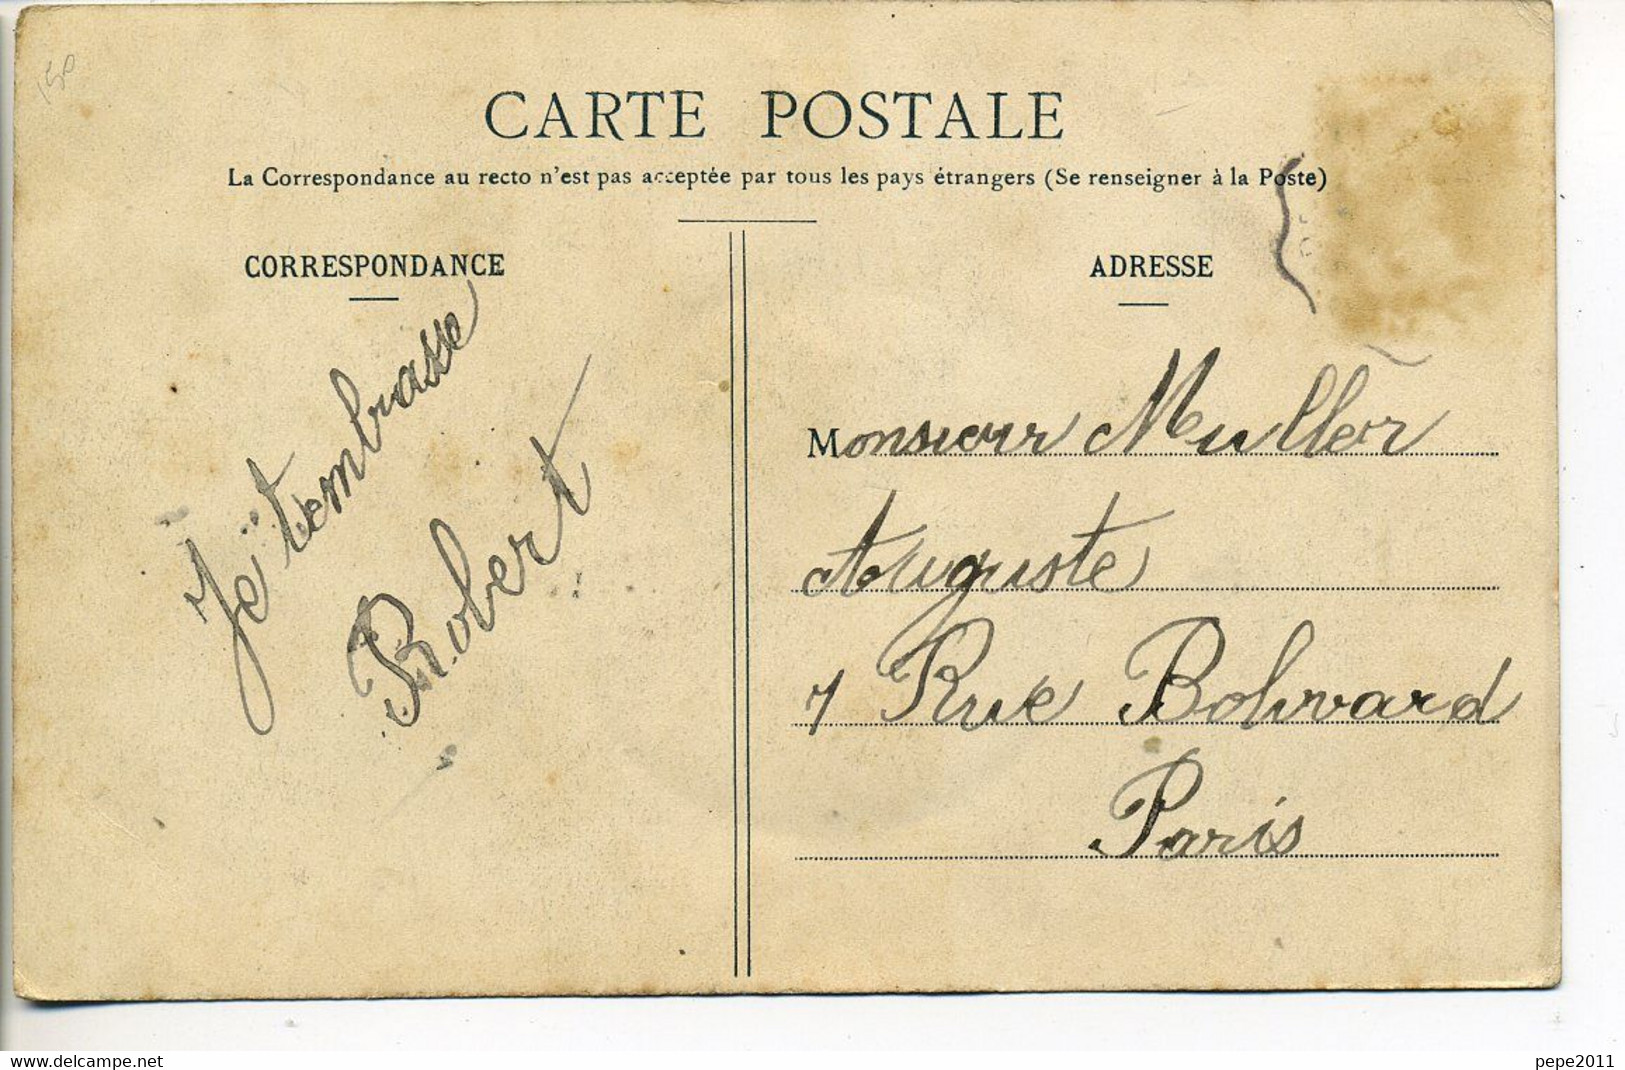 150
CARTE POSTALE
La Correspondance au recto n'est pas acceptée par tous les pays étrangers (Se renseigner à la Poste)
CORRESPONDANCE
Je t'embrasse
Robert
ADRESSE
Monsieur Muller
Auguste
7 Rue Bolivard
Paris
www.delcampe.net
pepe2011